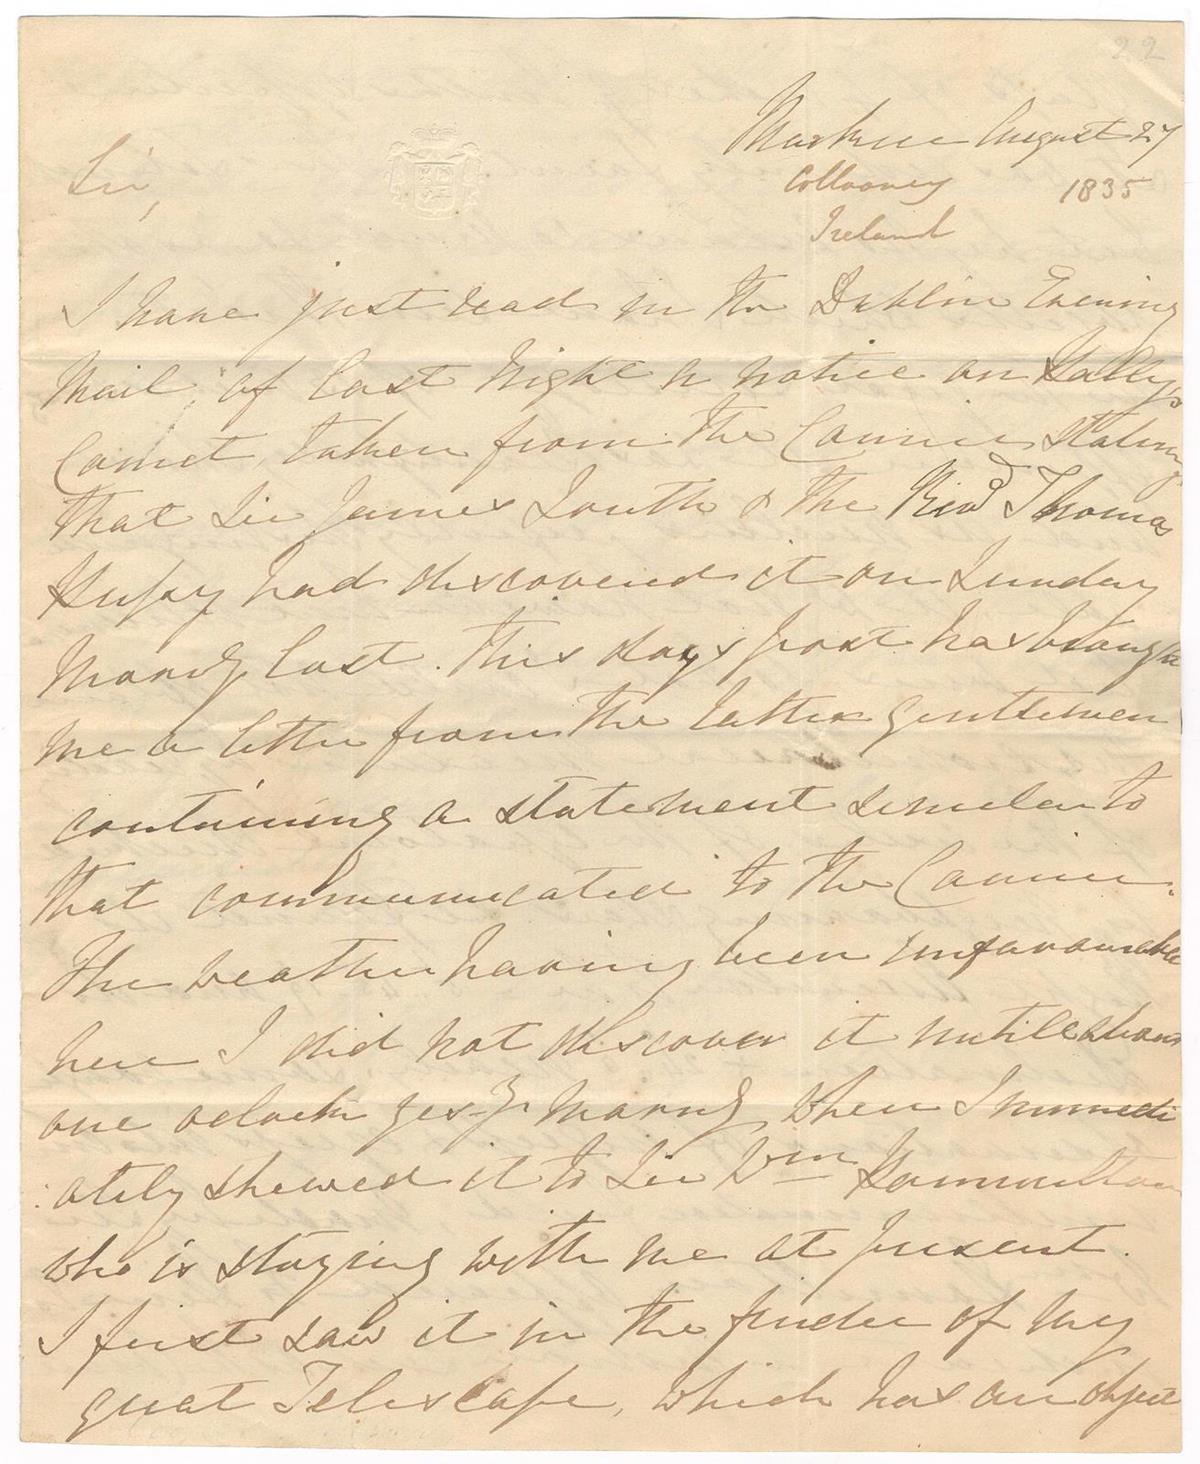 22
Markree August 27
Sir,
Collooney 1835
Ireland
I have just read in the Dublin Evening
Mail, of last Night a notice on Hally's
Comet, taken from the Courier stating
that Sir James South & the Revd Thomas
Hussy had discovered it on Sunday
Morng last. This days post has brought
me a letter from the latter gentleman
containing a statement similar to
that communicated to the Courier.
The weather having been unfavourable
here I did not discover it untill about
one oclock yesty morng, when I immedi
:ately shewed it to Sir Wm Hammilton
who is staying with me at present.
I first saw it in the finder of my
great Telescope, which has an object